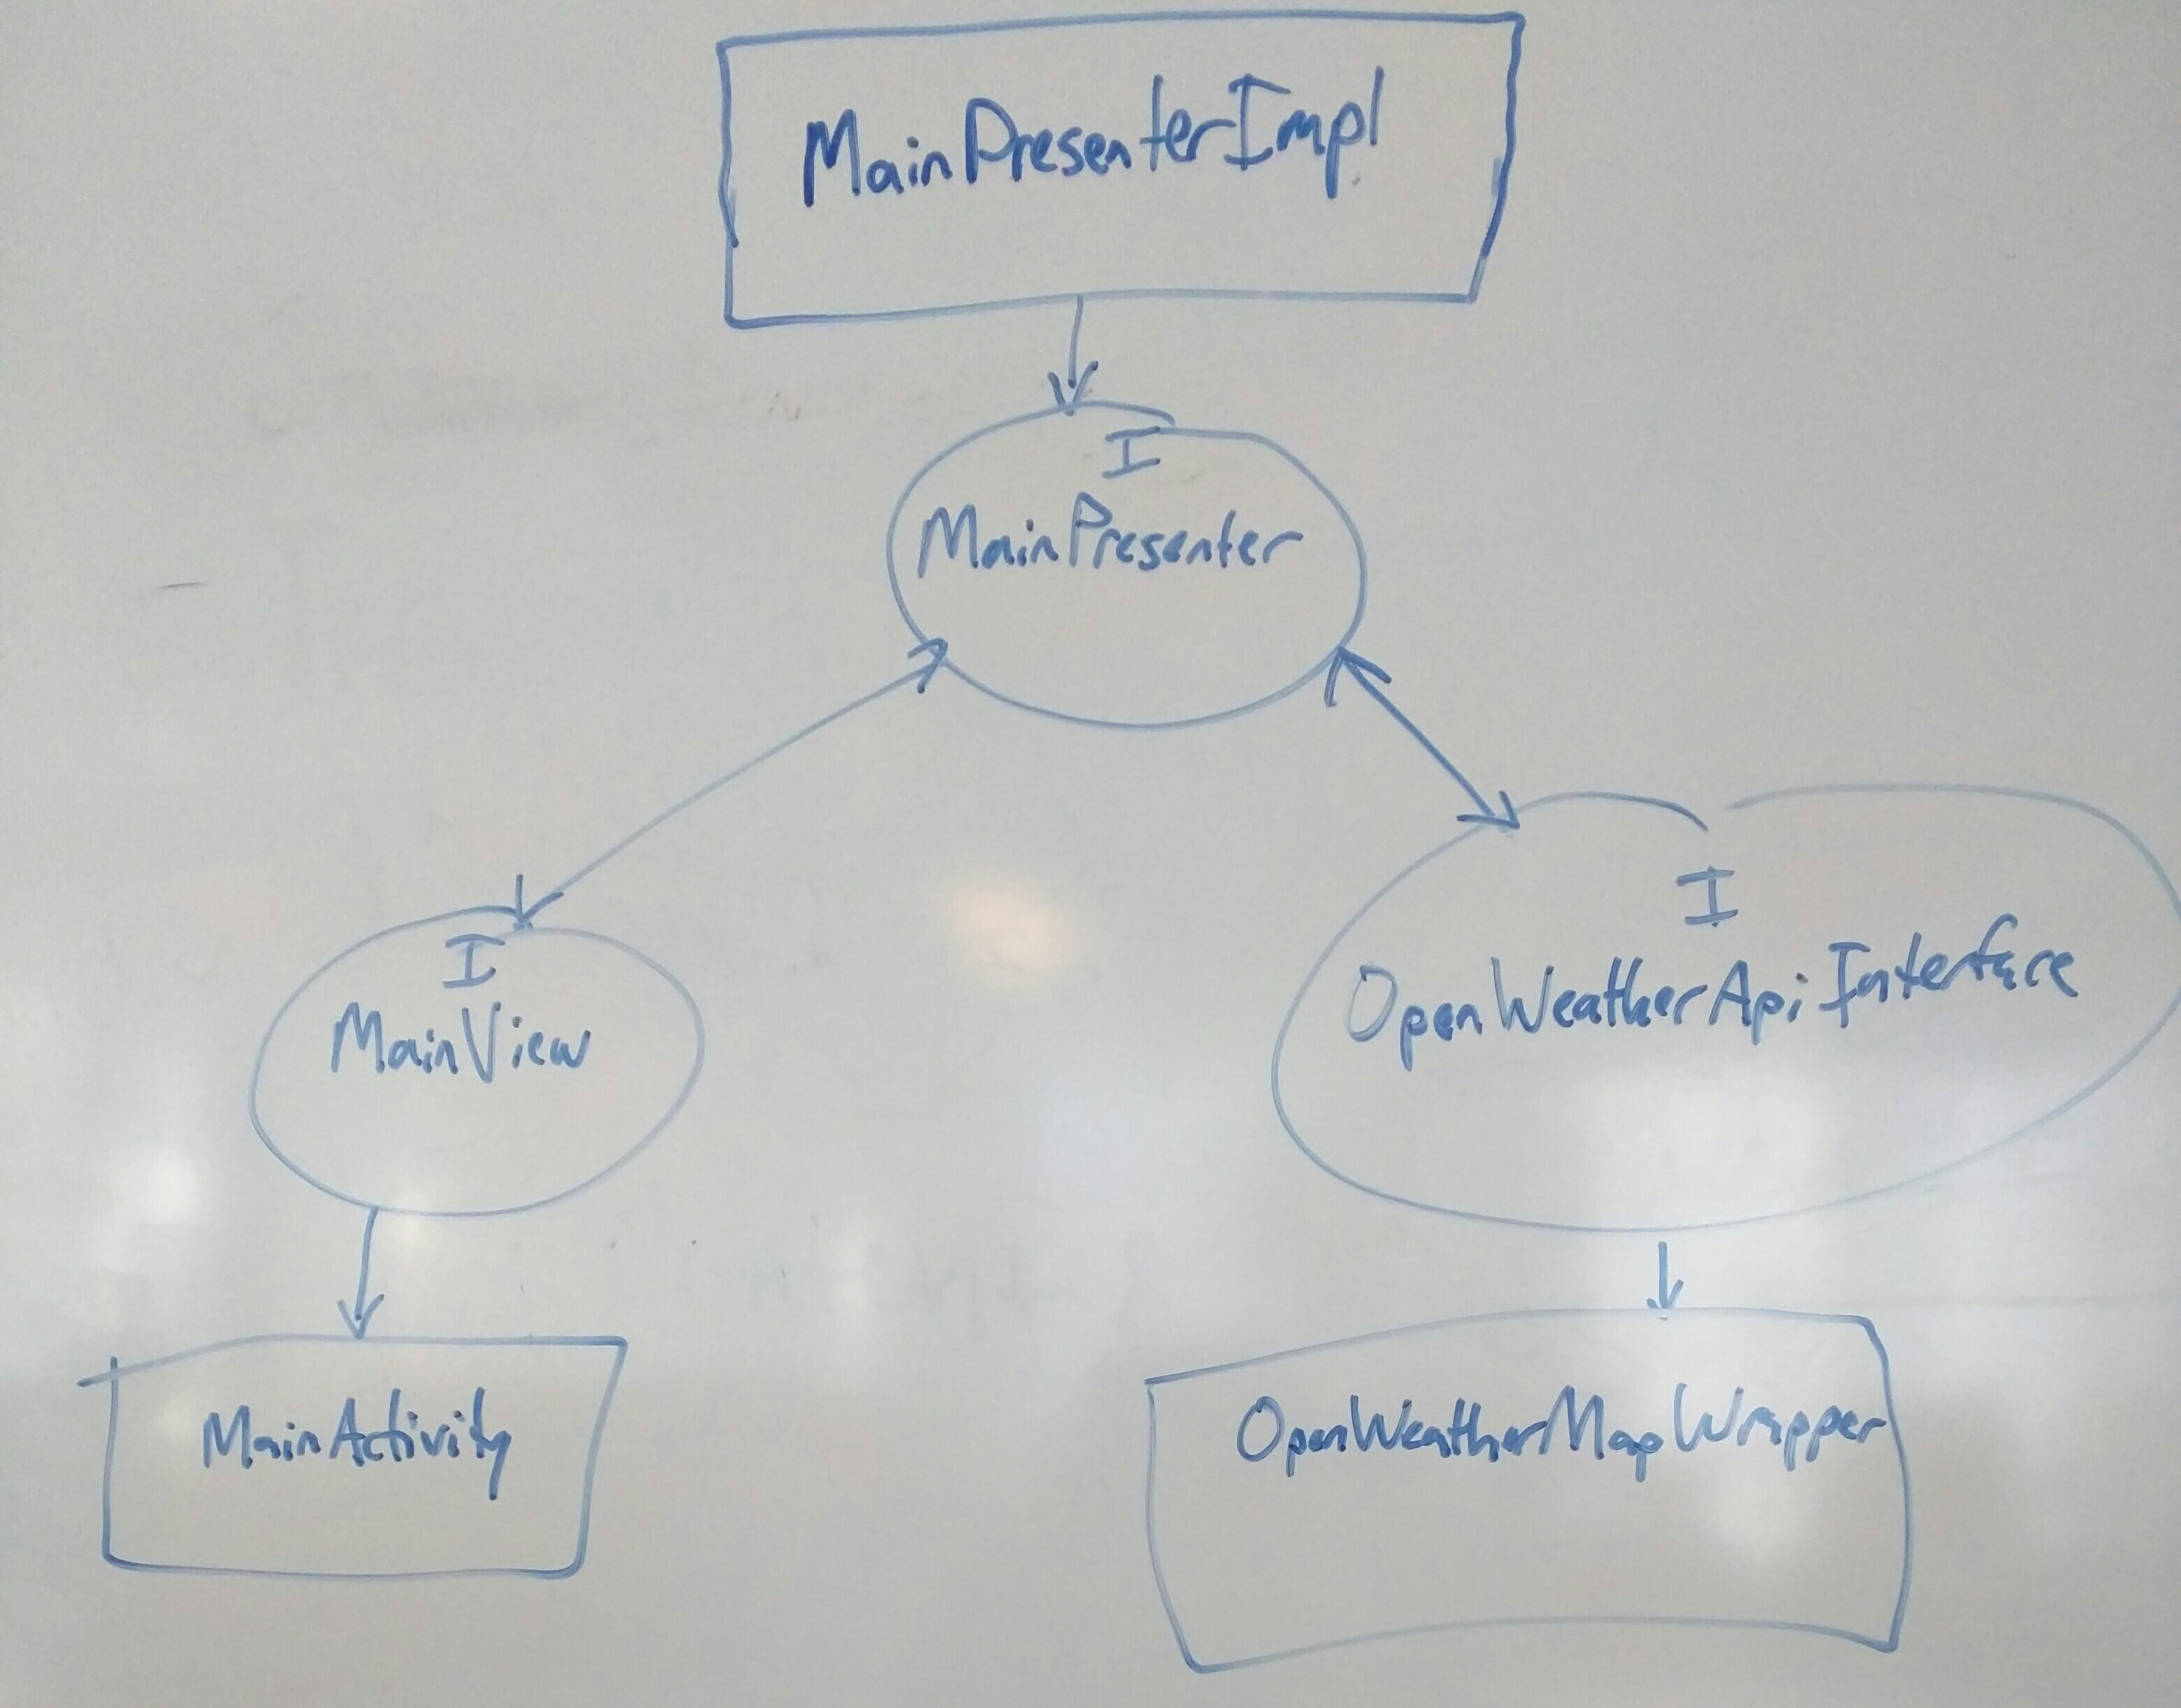 MainPresenterImpl
I
MainPresenter
I
MainView
I
OpenWeatherApiInterface
MainActivity
OpenWeatherMapWrapper